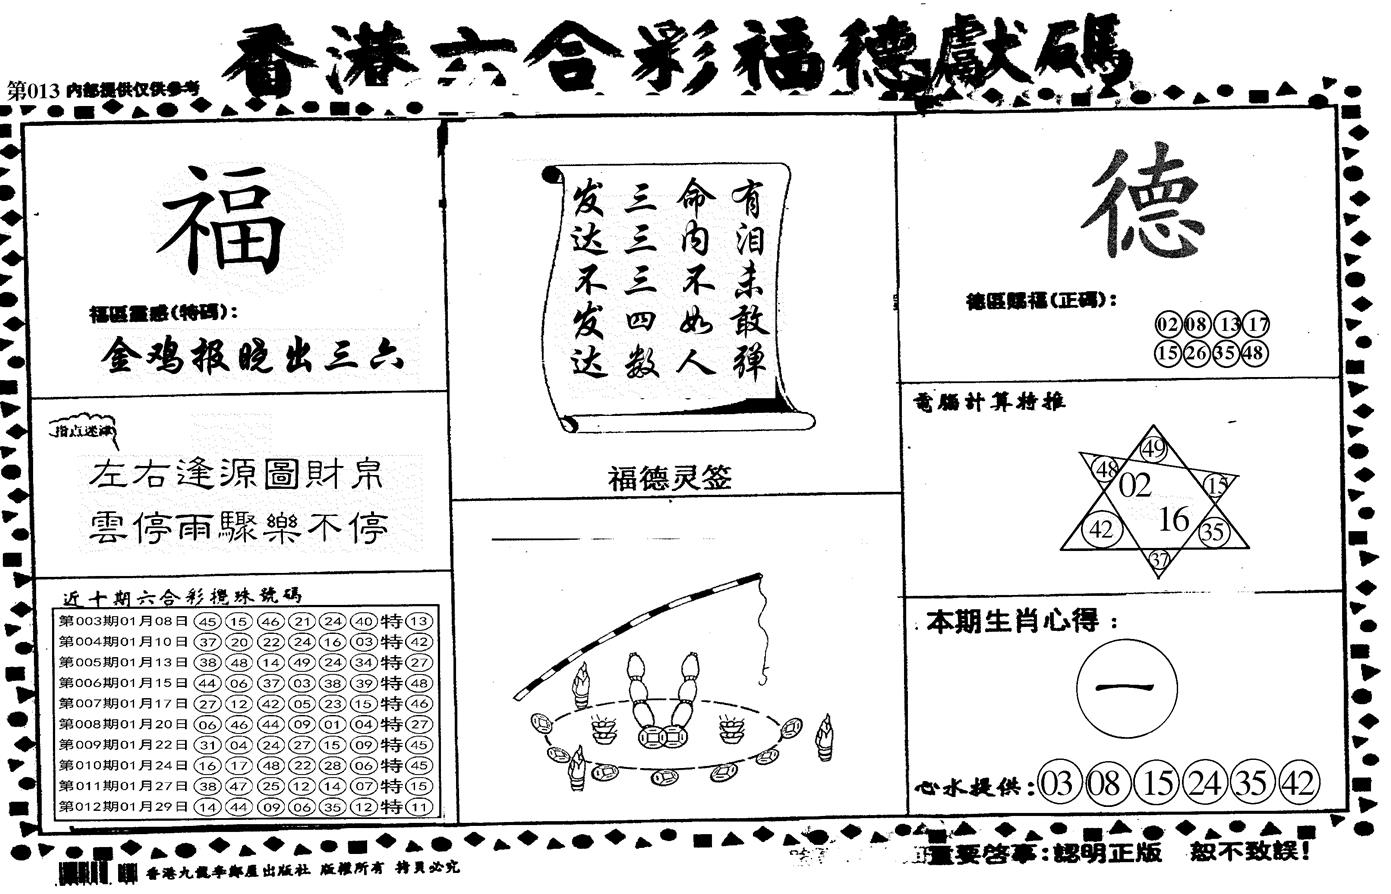 香港六合彩福德獻碼
第013 内部提供仅供参考
福
福區靈感(特碼):
金鸡报晓出三六
指点迷津
左右逢源圖財帛
雲停雨驟樂不停
近十期六合彩攪珠號碼
第003期01月08日 45 15 46 21 24 40 特 13
第004期01月10日 37 20 22 24 16 03 特 42
第005期01月13日 38 48 14 49 24 34 特 27
第006期01月15日 44 06 37 03 38 39 特 48
第007期01月17日 27 12 42 05 23 15 特 46
第008期01月20日 06 46 44 09 01 04 特 27
第009期01月22日 31 04 24 27 15 09 特 45
第010期01月24日 16 17 48 22 28 06 特 45
第011期01月27日 38 47 25 12 14 07 特 15
第012期01月29日 14 44 09 06 35 12 特 11
有泪未敢弹
命内不如人
三三三四数
发达不发达
福德灵签
德
德區賜福(正碼):
02 08 13 17
15 26 35 48
電腦計算特推
49
48 02 15
42 16 35
37
本期生肖心得:
一
心水提供: 03 08 15 24 35 42
重要啓事:認明正版 恕不致誤!
版權所有 拷貝必究